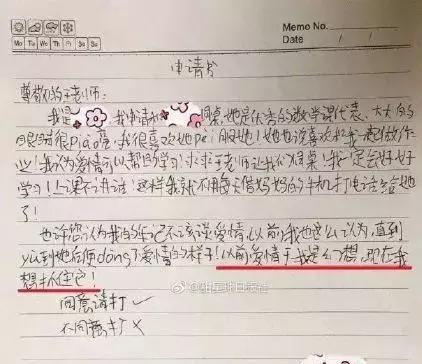 Memo No.
Mo Tu We Th Fr Sa Su
Date / /
申请书
尊敬的王老师:
我是 ,我申请和 同桌,她是优秀的数学课代表、大大的
眼睛很piao亮,我很喜欢她pei服她!她也说喜欢和我一起做作
业!我认为爱情可以帮助学习!求求王老师让我们同桌!我一定会好好
学习!上课不讲话!这样我就不用每天借妈妈的手机打电话给她
了!
也许您认为我的年纪不该说爱情,以前我也这么认为,直到
yu到她后便dong了爱情的样子!以前爱情于我是不想,现在我
想抓住它!
同意请打✓
不同意打×